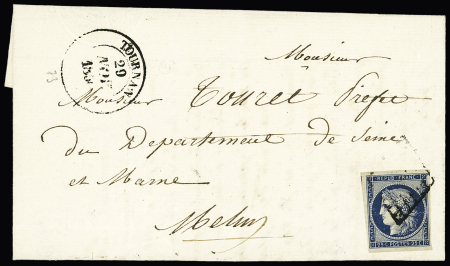 TOURNAN
29
NOV
Monsieur
Monsieur Touret Préfet
du Departement de Seine
et Marne
Melun
REPUB FRANC
25 C POSTES 25 C